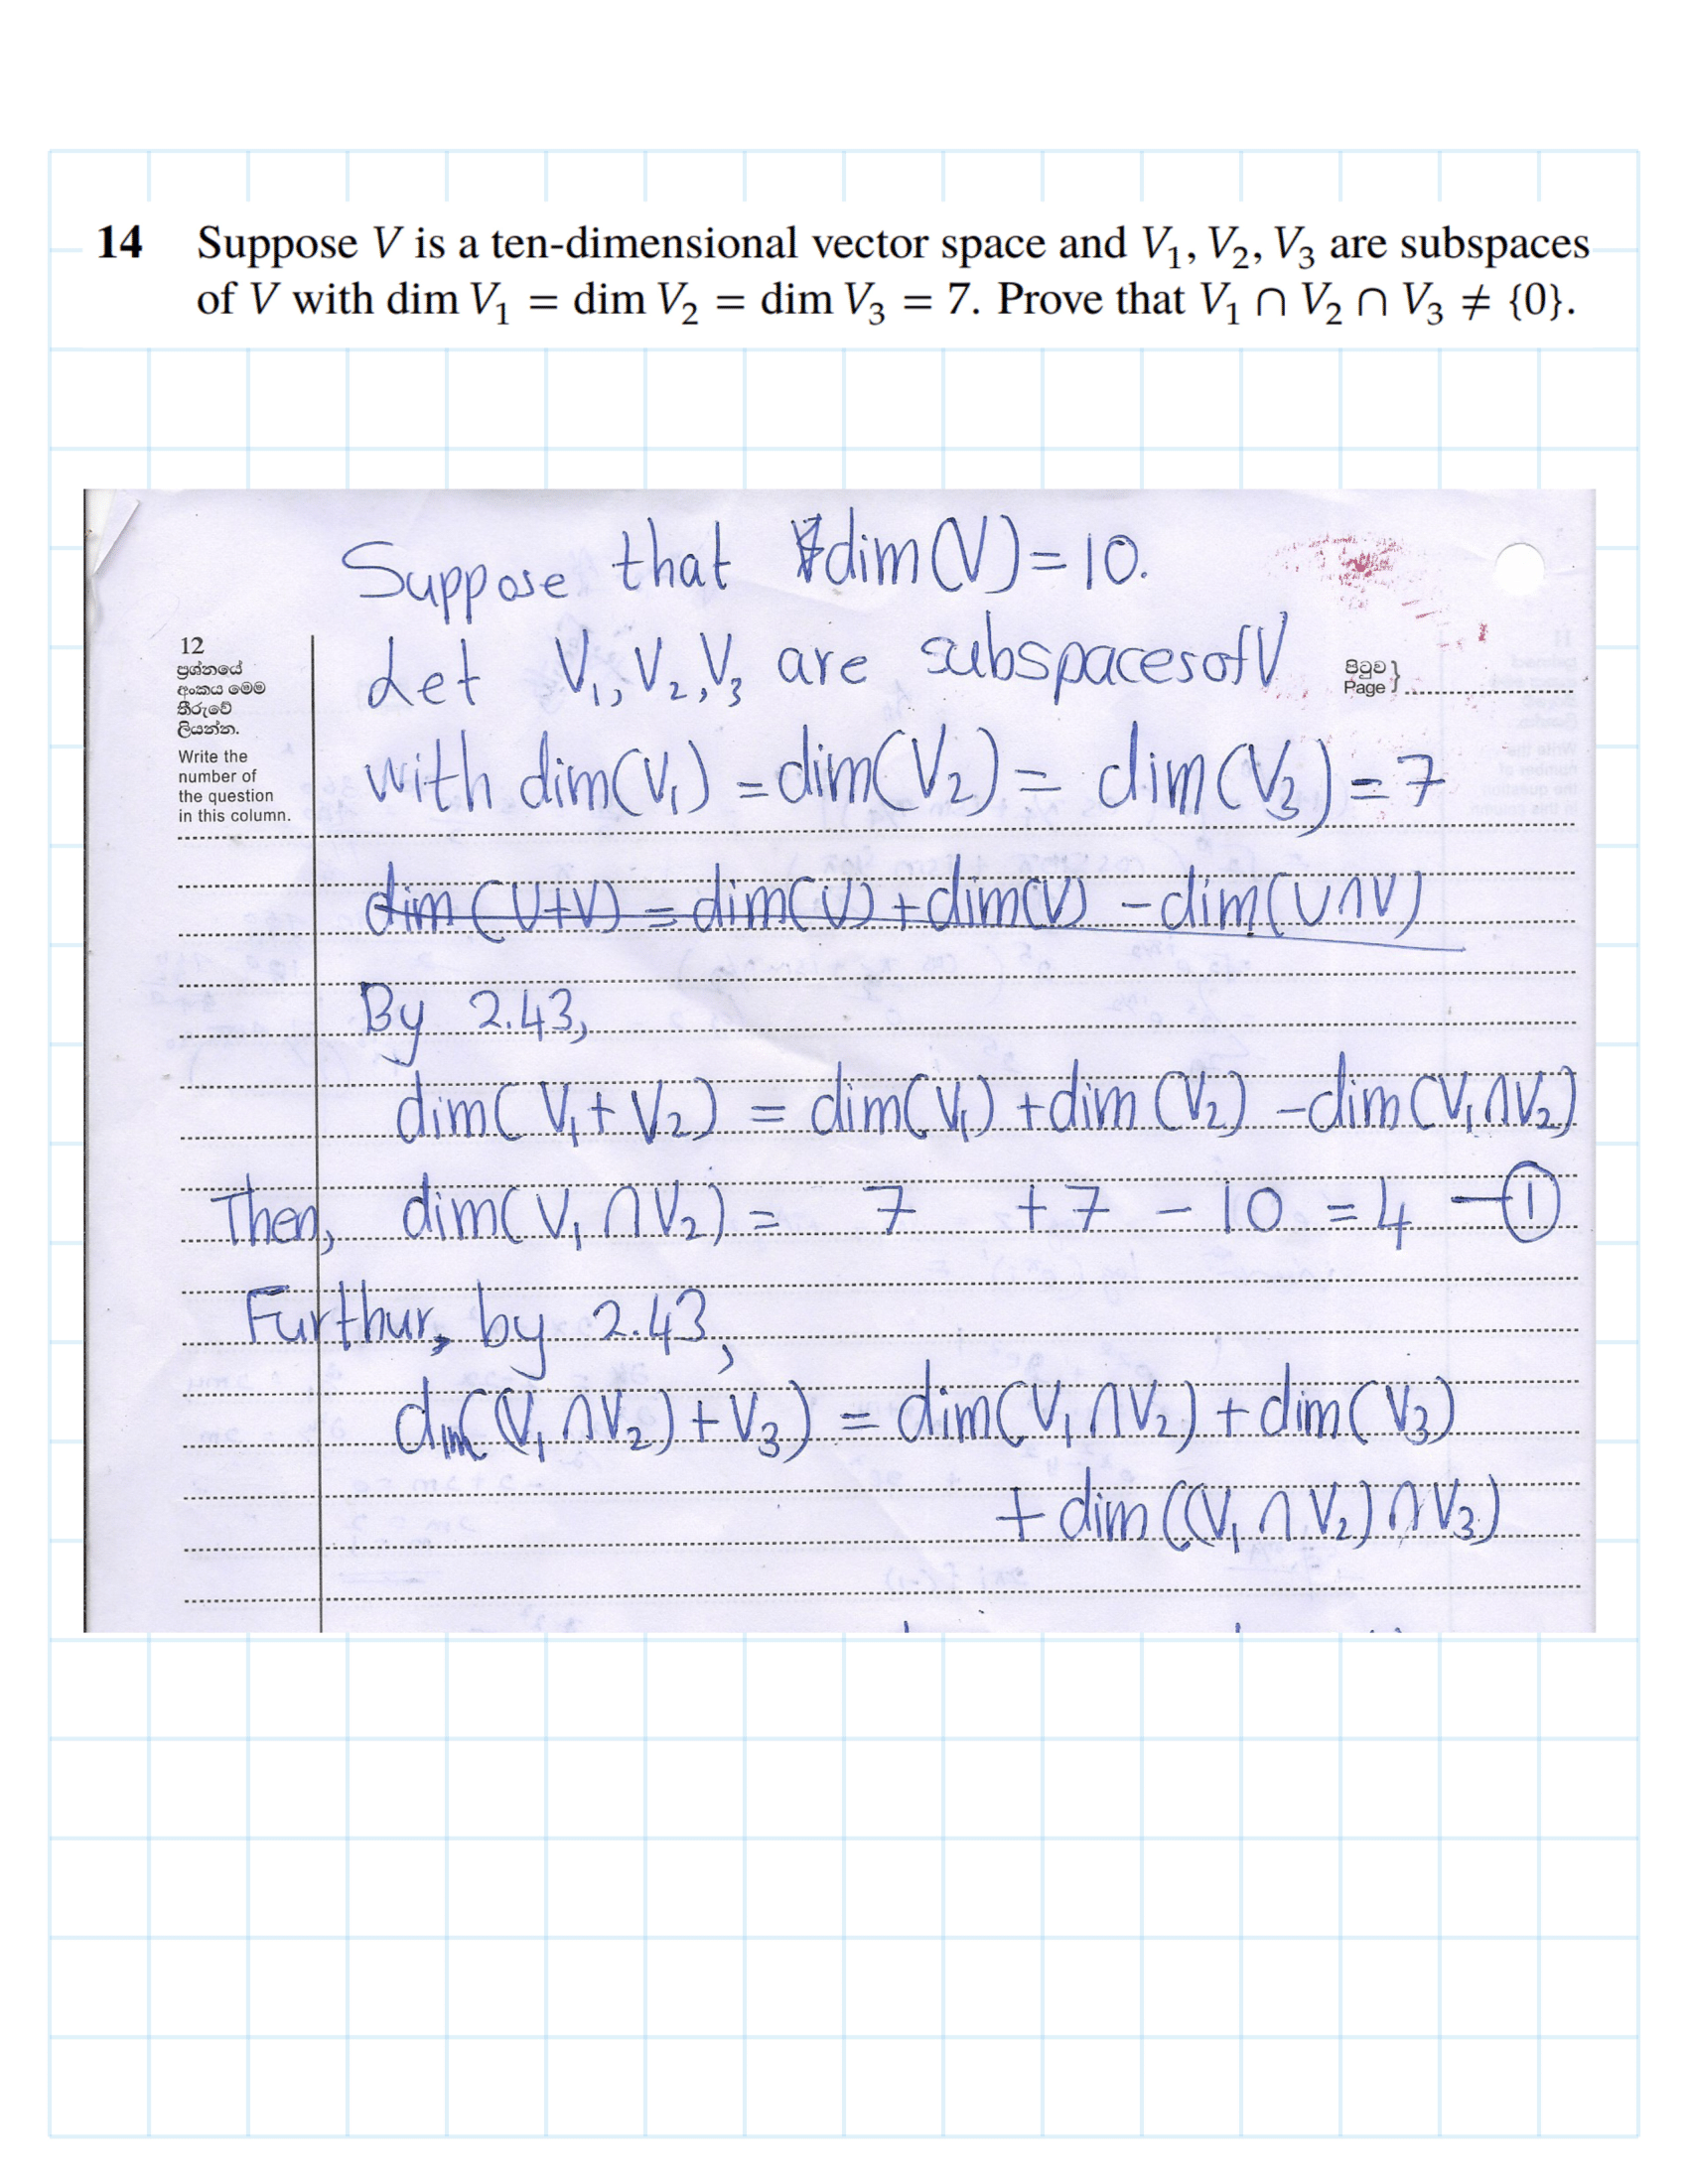 14 Suppose V is a ten-dimensional vector space and V₁, V₂, V₃ are subspaces
of V with dim V₁ = dim V₂ = dim V₃ = 7. Prove that V₁ ∩ V₂ ∩ V₃ ≠ {0}.
Suppose that dim(V) = 10.
12
ප්‍රශ්නයේ
අංකය මෙම
තීරුවේ
ලියන්න.
Write the
number of
the question
in this column.
Let V₁, V₂, V₃ are subspaces of V
පිටුව
Page
with dim(V₁) = dim(V₂) = dim(V₃) = 7
dim(U+V) = dim(U) + dim(V) - dim(U∩V)
By 2.43,
dim(V₁+V₂) = dim(V₁) + dim(V₂) - dim(V₁∩V₂)
Then, dim(V₁∩V₂) = 7 + 7 - 10 = 4 — ①
Furthur, by 2.43,
dim((V₁∩V₂)+V₃) = dim(V₁∩V₂) + dim(V₃)
+ dim((V₁∩V₂)∩V₃)